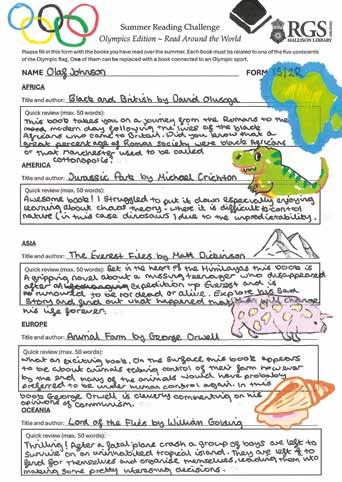 Summer Reading Challenge
Olympics Edition ~ Read Around the World
RGS
MALLISON LIBRARY
Please fill in this form with the books you have read over the summer. Each book must be related to one of the five continents
of the Olympic flag. One of them can be replaced with a book connected to an Olympic sport.
NAME Olaf Johnson FORM
AFRICA
Title and author: Black and British by David Olusoga
Quick review (max. 50 words):
This book takes you on a journey from the Romans to the
modern day following the lives of the black
Africans who came to Britain. Did you know that a
great percentage of Roman society were black Africans
or that Manchester used to be called
cottonopolis?
AMERICA
Title and author: Jurassic Park by Michael Crichton
Quick review (max. 50 words):
Awesome book! I struggled to put it down especially enjoying
learning about chaos theory - where it is difficult to control
nature (in this case dinosaurs) due to the unpredictability.
ASIA
Title and author: The Everest Files by Matt Dickinson
Quick review (max. 50 words): Set in the heart of the Himilayas this book is
a gripping novel about a missing teenager who disappeared
after expedition up Everest and is
rumoured to be for dead or alive. Explore his sad
story and find out what happened that will change
his life forever.
EUROPE
Title and author: Animal Farm by George Orwell
Quick review (max. 50 words):
What an exciting book. On the surface this book appears
to be about animals taking control of their farm however
by the end many of the animals would have probably
preferred to be under human control again. In this
book George Orwell is cleverly commenting on his
opinions of communism.
OCEANIA
Title and author: Lord of the Flies by William Golding
Quick review (max. 50 words):
Thrilling! After a fatal plane crash a group of boys are left to
survive on an uninhabited tropical island. They are left to
fend for themselves and organise themselves, leading them into
making some pretty interesting decisions.